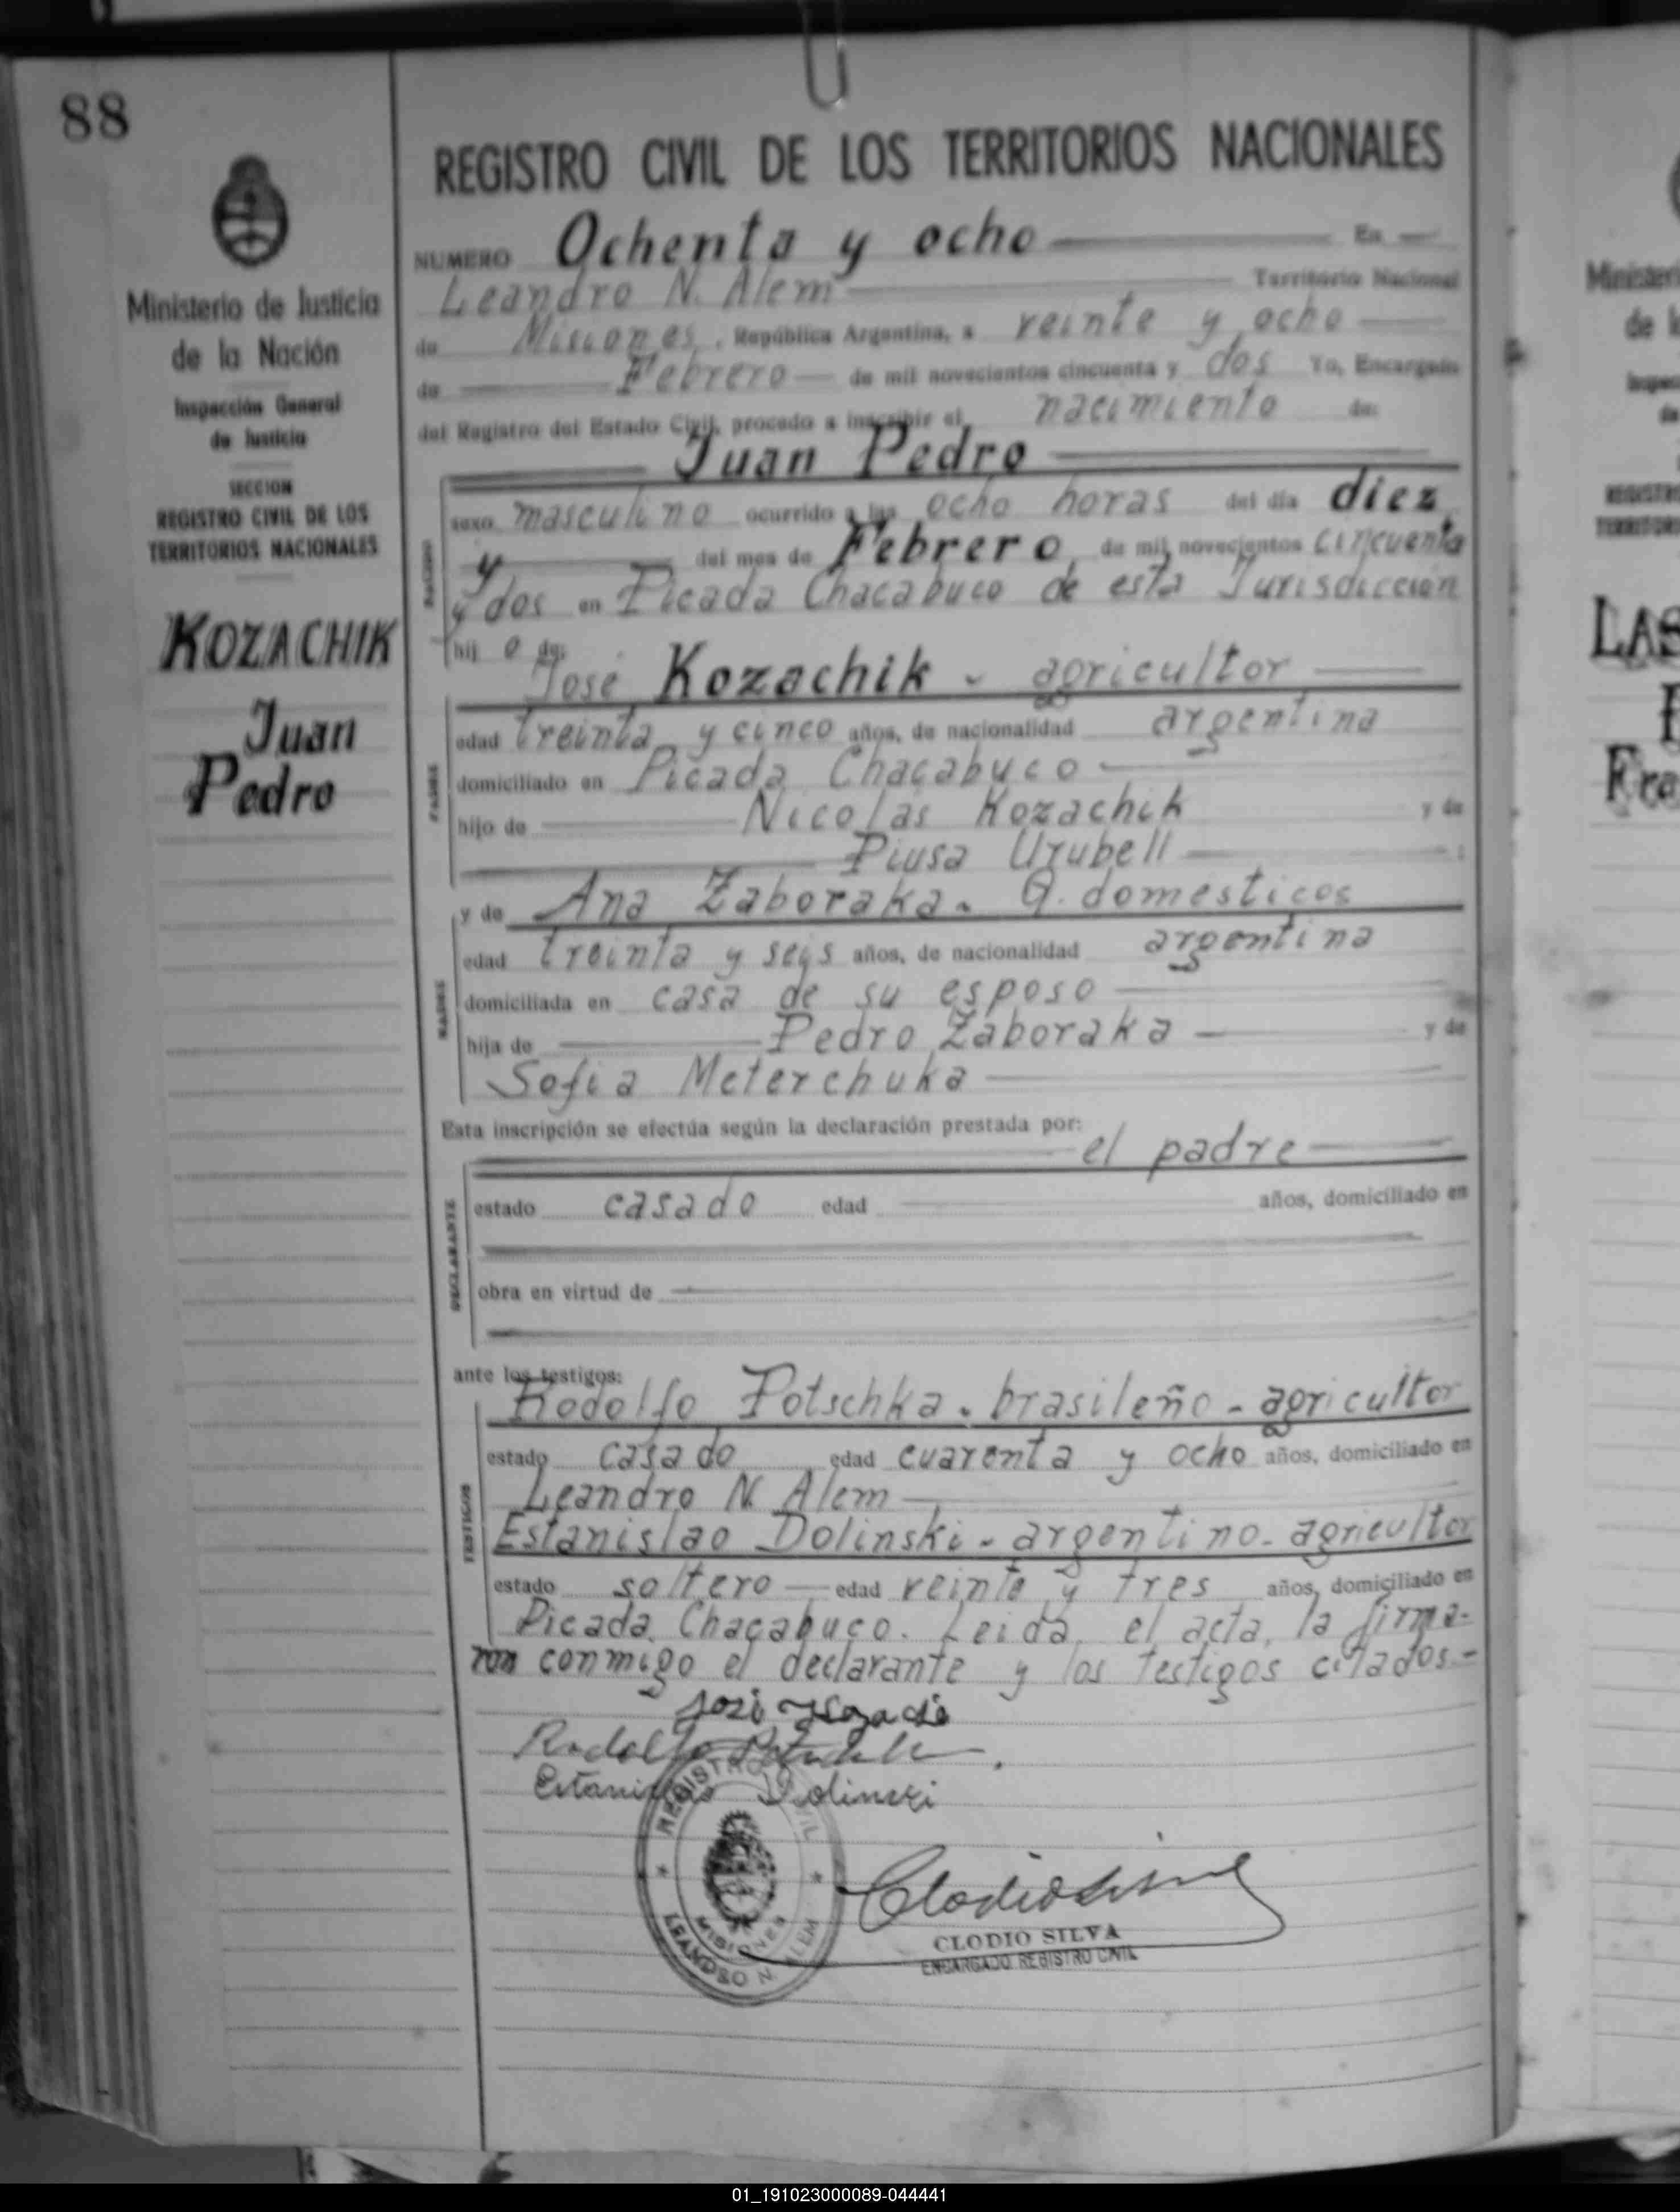 88
Ministerio de Justicia
de la Nación
Inspección General
de Justicia
SECCION
REGISTRO CIVIL DE LOS
TERRITORIOS NACIONALES
KOZACHIK
Juan
Pedro
REGISTRO CIVIL DE LOS TERRITORIOS NACIONALES
NUMERO Ochenta y ocho En
Leandro N. Alem Territorio Nacional
de Misiones, República Argentina, a veinte y ocho
de Febrero de mil novecientos cincuenta y dos Yo, Encargado
del Registro del Estado Civil, procedo a inscribir el nacimiento de:
Juan Pedro
sexo masculino ocurrido a las ocho horas del día diez
y del mes de Febrero, de mil novecientos cincuenta
y dos en Picada Chacabuco de esta Jurisdicción
hij o de:
José Kozachik - agricultor
PADRE
edad treinta y cinco años, de nacionalidad argentina
domiciliado en Picada Chacabuco
hijo de Nicolas Kozachik y de
Piusa Urubell
y de Ana Zaboraka. Q. domesticos
MADRE
edad treinta y seis años, de nacionalidad argentina
domiciliada en casa de su esposo
hija de Pedro Zaboraka y de
Sofia Meterchuka
Esta inscripción se efectúa según la declaración prestada por:
el padre
DECLARANTE
estado casado edad años, domiciliado en
obra en virtud de
ante los testigos:
Rodolfo Potschka. brasileño - agricultor
TESTIGOS
estado casado edad cuarenta y ocho años, domiciliado en
Leandro N. Alem
Estanislao Dolinski - argentino - agricultor
estado soltero edad veinte y tres años, domiciliado en
Picada Chacabuco. Leida el acta, la firma-
ron conmigo el declarante y los testigos citados.-
Rodolfo
Estanislao Dolinski
REGISTRO CIVIL
MISIONES
LEANDRO N. ALEM
Clodio Silva
CLODIO SILVA
ENCARGADO REGISTRO CIVIL
Ministeri
LAS
Fra
01_191023000089-044441